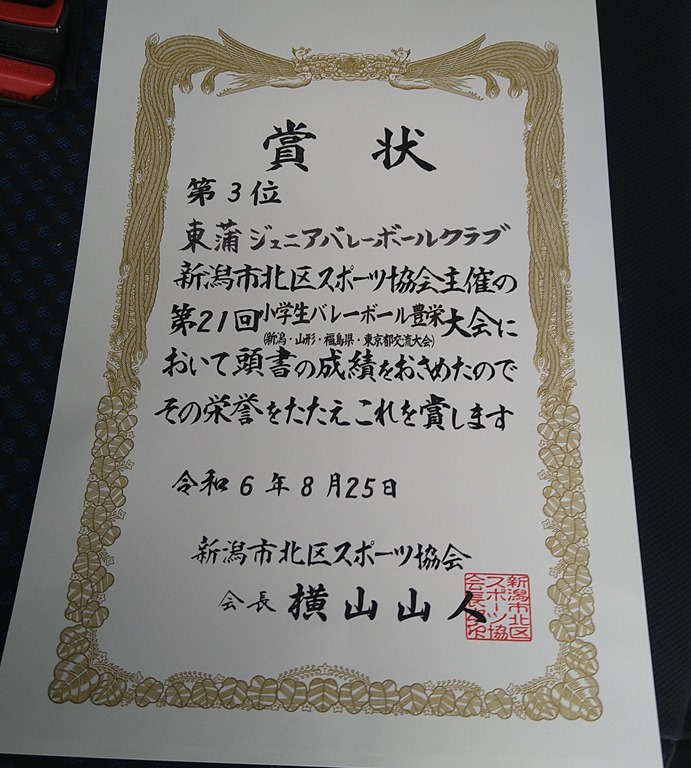 賞状
第3位
東蒲ジュニアバレーボールクラブ
新潟市北区スポーツ協会主催の
第21回小学生バレーボール豊栄大会に
(新潟・山形・福島県・東京都交流大会)
おいて頭書の成績をおさめたので
その栄誉をたたえこれを賞します
令和6年8月25日
新潟市北区スポーツ協会
会長 横山山人
新潟市北区
スポーツ協
会長